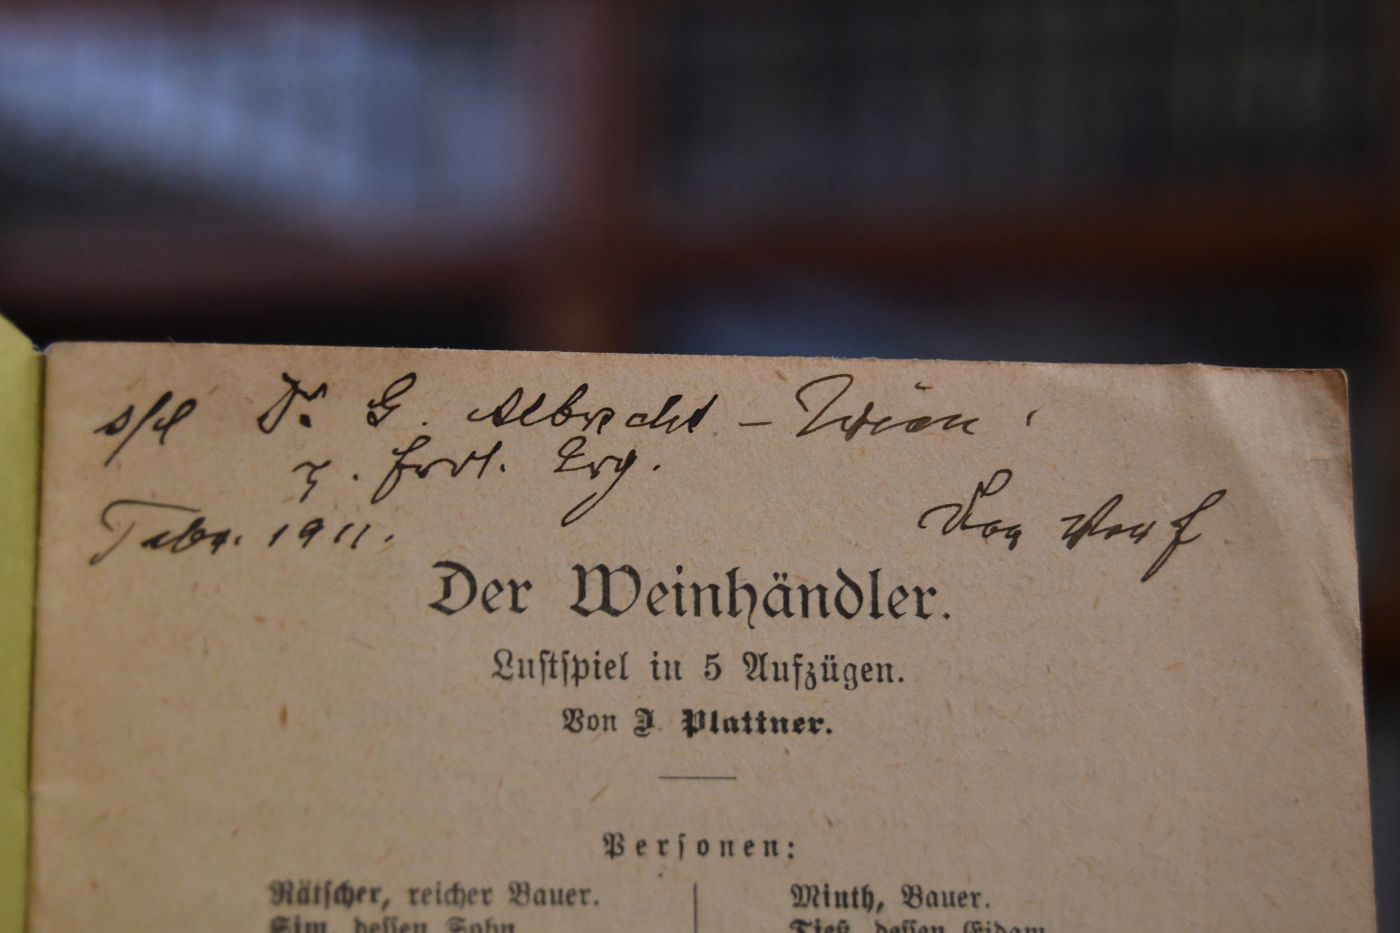 s/l Dr G. Albrecht – Wien
z. frdl. Erg.
Febr. 1911. Der Verf
Der Weinhändler.
Lustspiel in 5 Aufzügen.
Von J. Plattner.
Personen:
Rätscher, reicher Bauer.
Sim, dessen Sohn
Minth, Bauer.
Ties, dessen Eidam